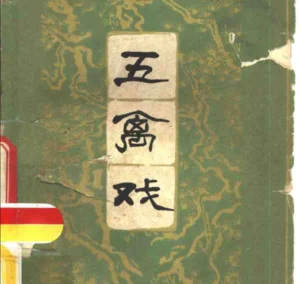 五
禽
戏